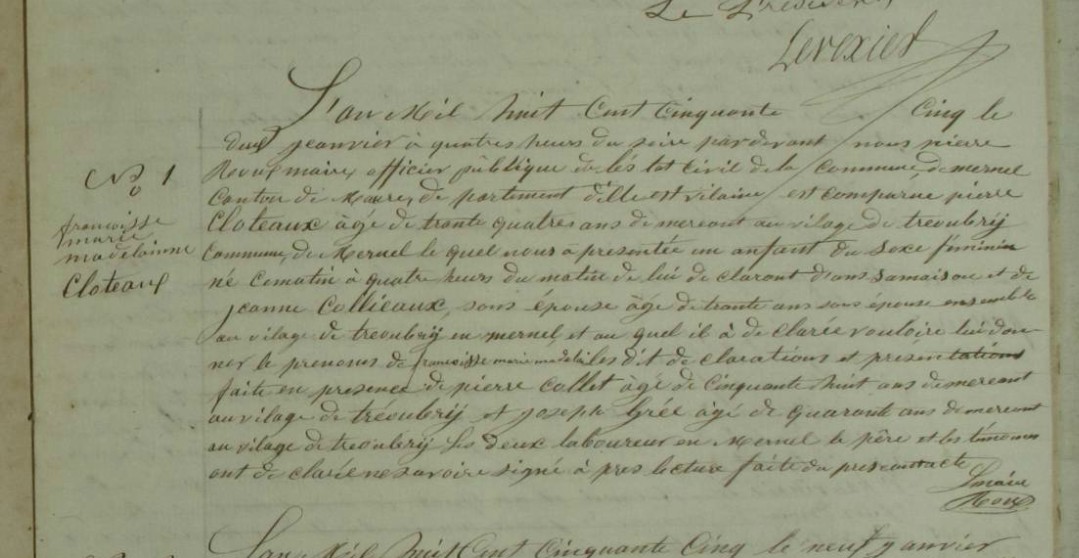 Le Président
Levexier
L'an Mil huit Cent Cinquante Cinq le
deux jeanvier à quatres heurs du soire par devant nous pierre
Roux maire officier publique de lés tat Civil de la Commune de mernel
Canton de Maure, de partement d'ille est vilaine est comparue pierre
Cloteaux âgé de trante quatres ans demereant au vilage de treoubrij
Commune, de Mernel le quel nous a presentée un anfant du Sexe féminin
né Cematin à quatre heurs du matin de lui de claront dans Samaison et de
jeanne Collieaux, sons épouse âge de trante ans sons épouse ensemble
au vilage de treoubrij en mernel, et au quel il à de clarée vouloire lui don-
ner le prenoms de françoisse marie madelai les dit de clarations et présentations
faite en presence de pierre Collet âgé de Cinquante huit ans demereant
au vilage de treoubrij et joseph Grée âgé de quarante ans demereant
au vilage de treoubrij les deux laboureur en Mernel le père et les témoins
ont de claré ne savoire signé à pres lecture faite du pres contacte
Lmaire
Roux
No 1
françoisse
marie
madelainne
Cloteaux
L'an Mil huit Cent Cinquante Cinq le neuf janvier